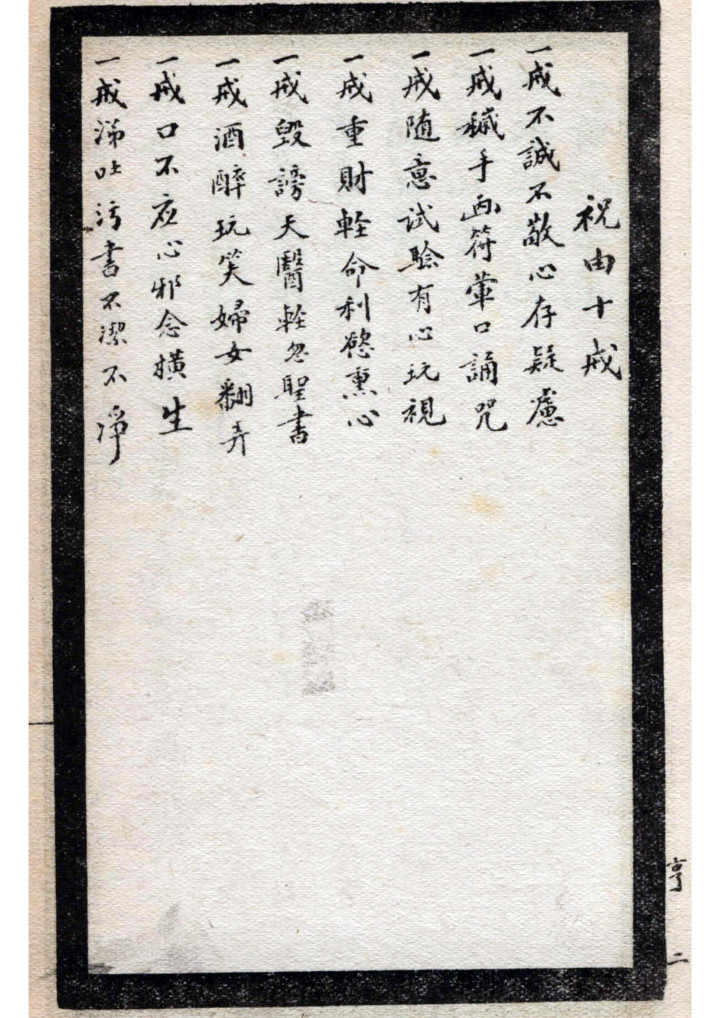 祝由十戒
一戒不誠不敬心存疑慮
一戒穢手画符葷口誦咒
一戒随意試驗有心玩視
一戒重財軽命利慾熏心
一戒毀謗天醫軽忽聖書
一戒酒醉玩笑婦女翻弄
一戒口不应心邪念横生
一戒涕吐污書不潔不淨
亨 二